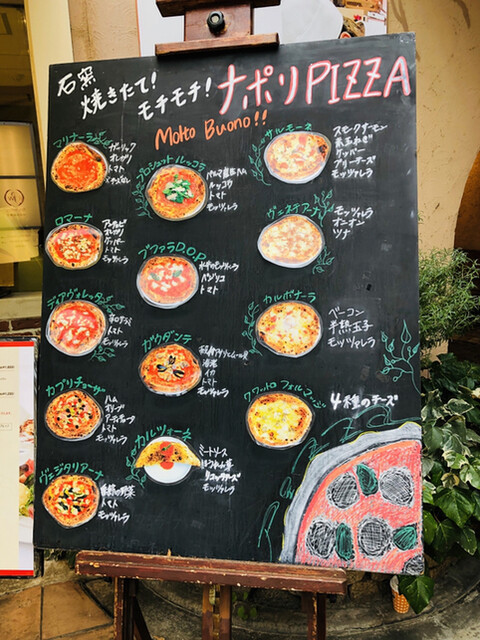 石窯
焼きたて!
モチモチ!
ナポリPIZZA
Molto Buono!!
マリナーラ
ガーリック
オレガノ
トマト
ロマーナ
アンチョビ
オレガノ
ケッパー
トマト
モッツァレラ
ディアヴォレッタ
トマト
モッツァレラ
カプリチョーザ
ハム
オリーブ
アーティチョーク
トマト
モッツァレラ
ヴェジタリアーナ
季節の野菜
トマト
モッツァレラ
プロシュット ルッコラ
パルマ産生ハム
ルッコラ
トマト
モッツァレラ
ブファラD.O.P
水牛のモッツァレラ
バジリコ
トマト
カルツォーネ
ミートソース
ほうれん草
リコッタチーズ
モッツァレラ
海老
イカ
トマト
モッツァレラ
サルモーネ
スモークサーモン
赤玉ねぎ
ケッパー
クリームチーズ
モッツァレラ
ヴェネツィアーナ
モッツァレラ
オニオン
ツナ
カルボナーラ
ベーコン
半熟玉子
モッツァレラ
クワットロ フォルマッジ
4種のチーズ